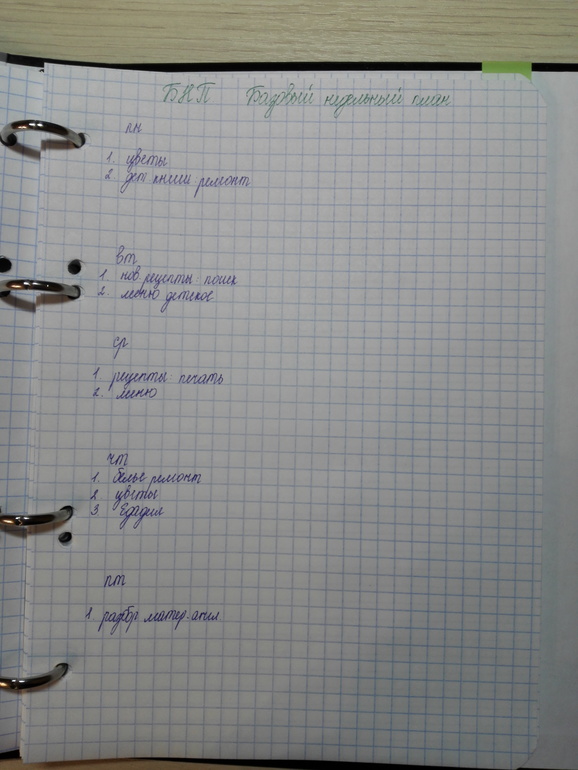 БНП Базовый нудельный план
пн
1. цветы
2 дет книги ремонт
вт
1. нов рецепты поиск
2. меню детское
ср
1. рецепты печать
2. меню
чт
1. белье ремонт
2 цветы
3 Едадил
пт
1. разбор матер.